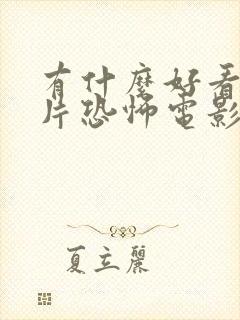 有什麼好看
片恐怖電影
夏立麗